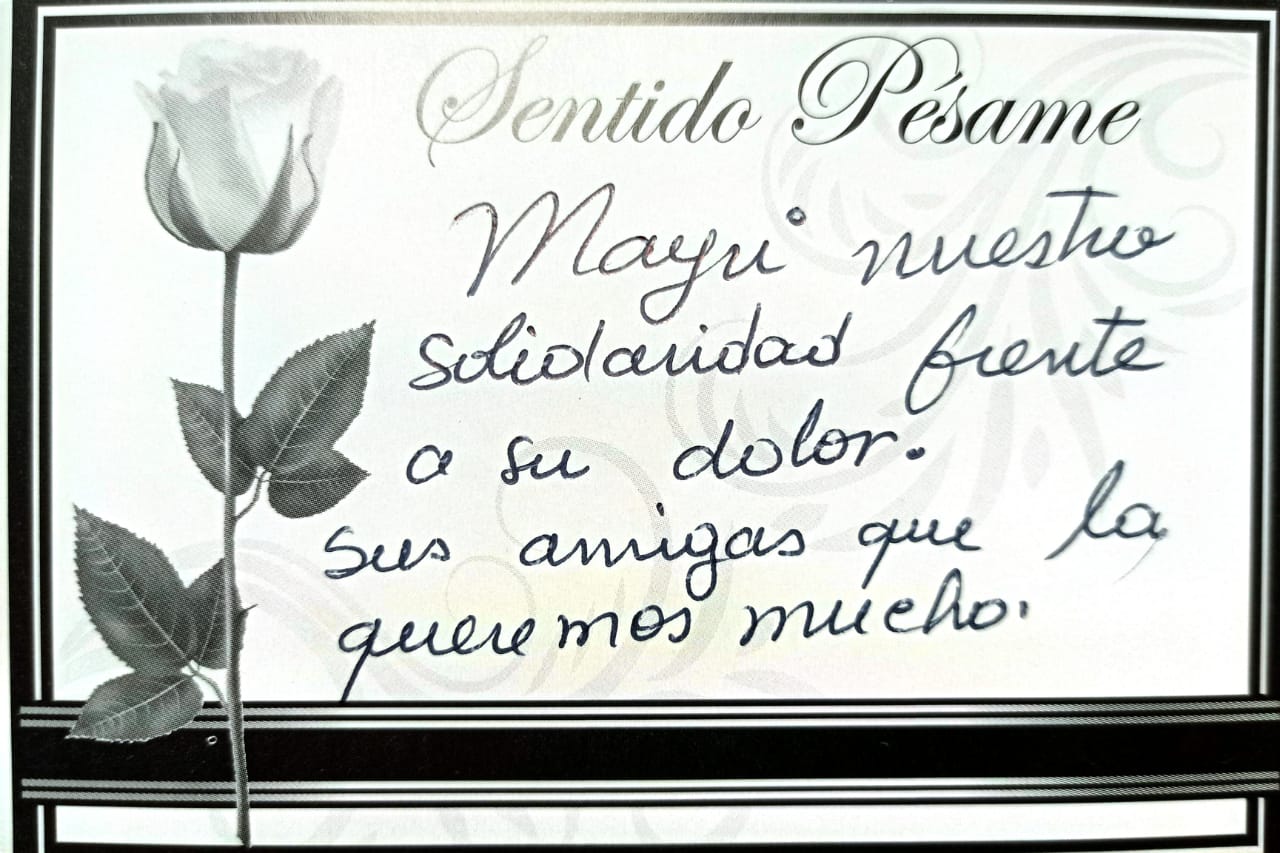 Sentido Pésame
Mayri nuestra
solidaridad frente
a su dolor.
Sus amigas que la
queremos mucho.